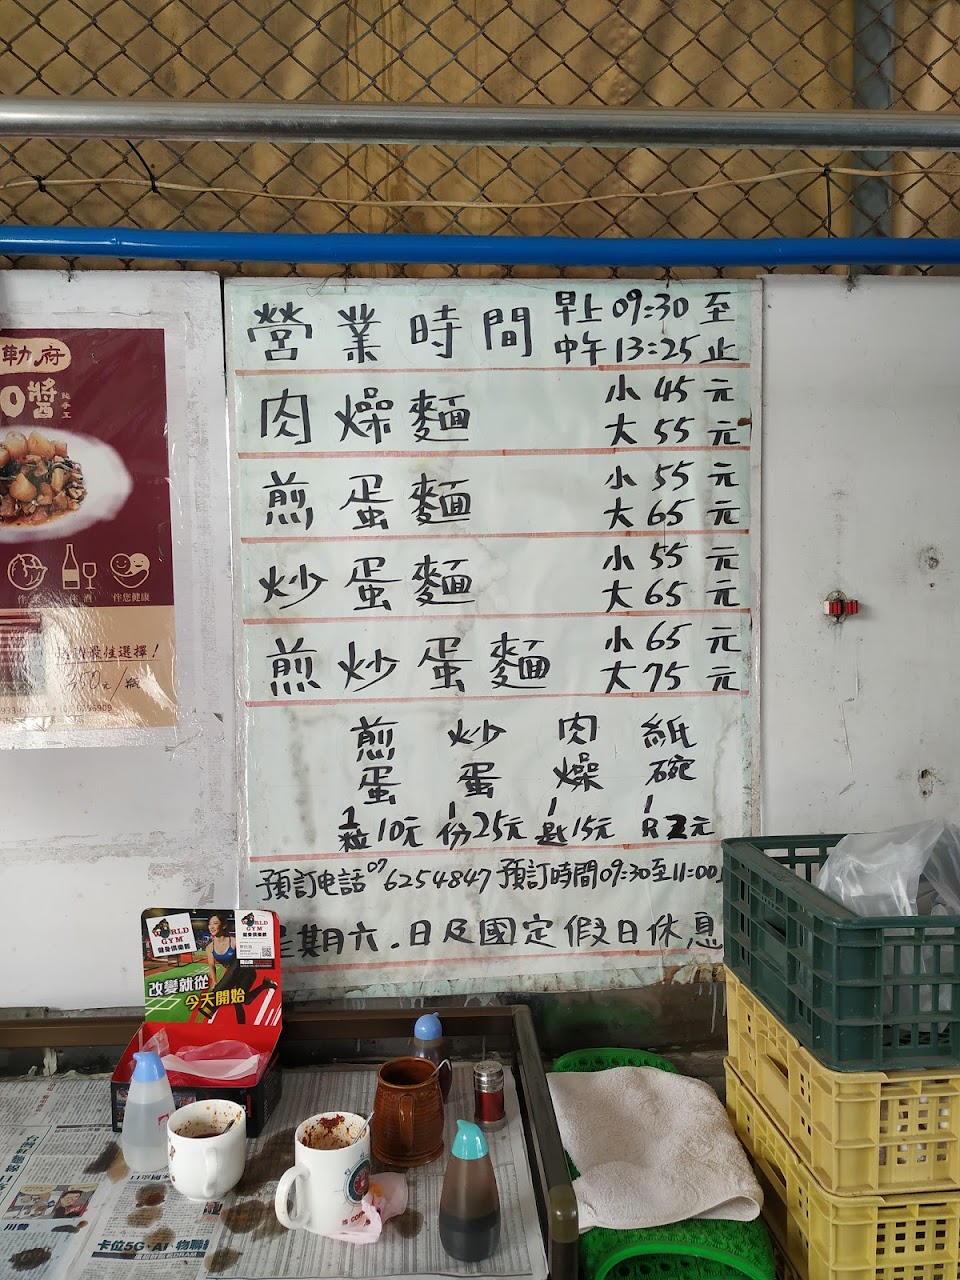 營業時間 早上 09:30 至
中午 13:25 止
肉燥麵 小 45 元
大 55 元
煎蛋麵 小 55 元
大 65 元
炒蛋麵 小 55 元
大 65 元
煎炒蛋麵 小 65 元
大 75 元
煎蛋 1粒10元
炒蛋 1份25元
肉燥 1匙15元
紙碗 1只2元
預訂电話 07 6254847 預訂時間09:30至11:00
星期六.日及國定假日休息
勒府
醬
純手工
伴酒
伴您健康
最佳選擇!
WORLD GYM
健身俱樂部
改變就從
今天開始
卡位5G、AI、物聯網